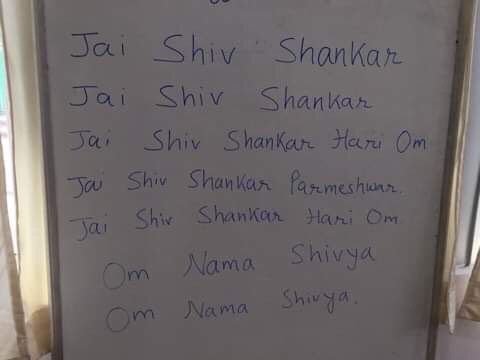 Jai Shiv Shankar
Jai Shiv Shankar
Jai Shiv Shankar Hari Om
Jai Shiv Shankar Parmeshwar.
Jai Shiv Shankar Hari Om
Om Nama Shivya
Om Nama Shivya.